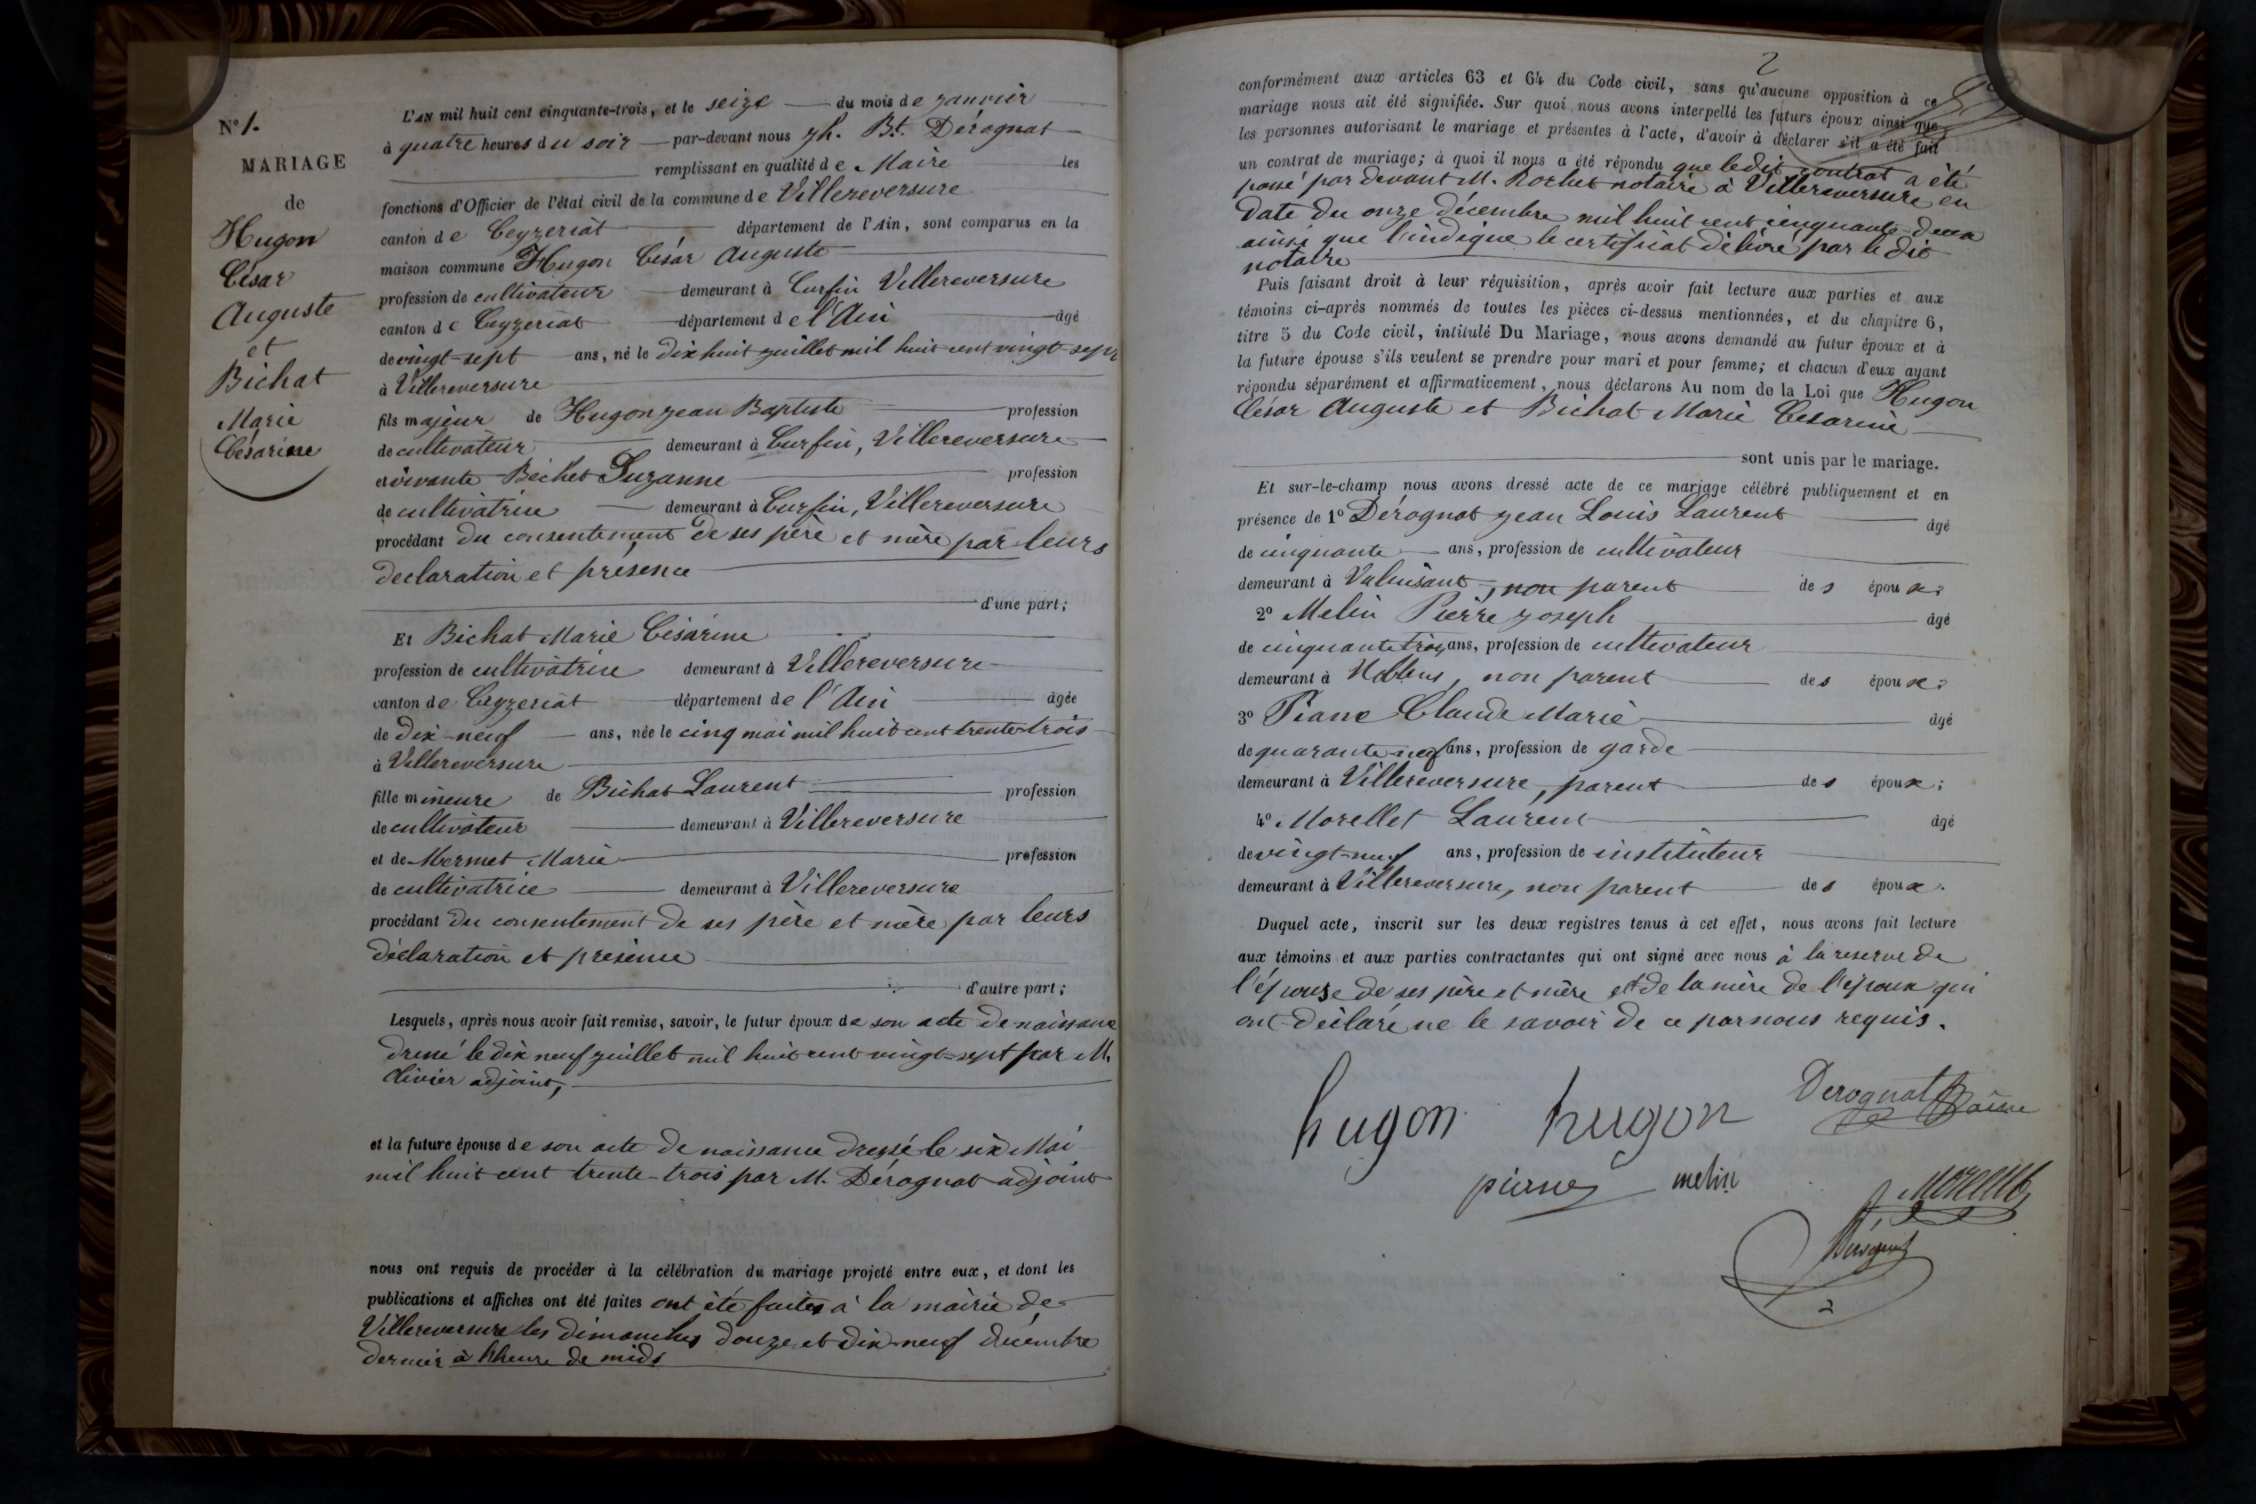 N° 1.
MARIAGE
de
Hugon
César
Auguste
et
Bichat
Marie
Césarine
L'AN mil huit cent cinquante-trois, et le seize du mois de janvier
à quatre heures du soir par-devant nous Jh. Bt. Dérognat
remplissant en qualité de Maire les
fonctions d'Officier de l'état civil de la commune de Villereversure
canton de Ceyzeriat département de l'Ain, sont comparus en la
maison commune Hugon César Auguste
profession de cultivateur demeurant à Curfin Villereversure
canton de Ceyzeriat département de l'Ain âgé
de vingt-sept ans, né le dix huit juillet mil huit cent vingt-sept
à Villereversure
fils majeur de Hugon Jean Baptiste profession
de cultivateur demeurant à Curfin, Villereversure
et vivante Bichet Suzanne profession
de cultivatrice demeurant à Curfin, Villereversure
procédant du consentement de ses père et mère par leurs
declaration et présence
d'une part;
Et Bichat Marie Césarine
profession de cultivatrice demeurant à Villereversure
canton de Ceyzeriat département de l'Ain âgée
de dix-neuf ans, née le cinq mai mil huit cent trente-trois
à Villereversure
fille mineure de Bichat Laurent profession
de cultivateur demeurant à Villereversure
et de Mermet Marie profession
de cultivatrice demeurant à Villereversure
procédant du consentement de ses père et mère par leurs
déclaration et présence
d'autre part;
Lesquels, après nous avoir fait remise, savoir, le futur époux de son acte de naissance
dressé le dix neuf juillet mil huit cent vingt-sept par M.
Olivier adjoint,
et la future épouse de son acte de naissance dressé le six Mai
mil huit cent trente-trois par M. Dérognat adjoint
nous ont requis de procéder à la célébration du mariage projeté entre eux, et dont les
publications et affiches ont été faites ont été faites à la mairie de
Villereversure les dimanches douze et dix-neuf décembre
dernier à l'heure de midi
2
conformément aux articles 63 et 64 du Code civil, sans qu'aucune opposition à ce
mariage nous ait été signifiée. Sur quoi nous avons interpellé les futurs époux ainsi que
les personnes autorisant le mariage et présentes à l'acte, d'avoir à déclarer s'il a été fait
un contrat de mariage; à quoi il nous a été répondu que le dit contrat a été
passé par devant M. Rochet notaire à Villereversure en
date du onze décembre mil huit cent cinquante-deux
ainsi que l'indique le certificat délivré par le dit
notaire
Puis faisant droit à leur réquisition, après avoir fait lecture aux parties et aux
témoins ci-après nommés de toutes les pièces ci-dessus mentionnées, et du chapitre 6,
titre 5 du Code civil, intitulé Du Mariage, nous avons demandé au futur époux et à
la future épouse s'ils veulent se prendre pour mari et pour femme; et chacun d'eux ayant
répondu séparément et affirmativement, nous déclarons Au nom de la Loi que Hugon
César Auguste et Bichat Marie Césarine
sont unis par le mariage.
Et sur-le-champ nous avons dressé acte de ce mariage célébré publiquement et en
présence de 1° Dérognat Jean Louis Laurent âgé
de cinquante ans, profession de cultivateur
demeurant à Valuisant, non parent des époux;
2° Melin Pierre Joseph âgé
de cinquante trois ans, profession de cultivateur
demeurant à Noblens, non parent des époux;
3° Piane Claude Marie âgé
de quarante-neuf ans, profession de garde
demeurant à Villereversure, parent des époux;
4° Morellet Laurent âgé
de vingt-neuf ans, profession de instituteur
demeurant à Villereversure, non parent des époux.
Duquel acte, inscrit sur les deux registres tenus à cet effet, nous avons fait lecture
aux témoins et aux parties contractantes qui ont signé avec nous à la reserve de
l'épouse de ses père et mère et de la mère de l'époux qui
ont déclaré ne le savoir de ce par nous requis.
hugon hugon Derognat Maire
piane melin
Morellet
Dérognat